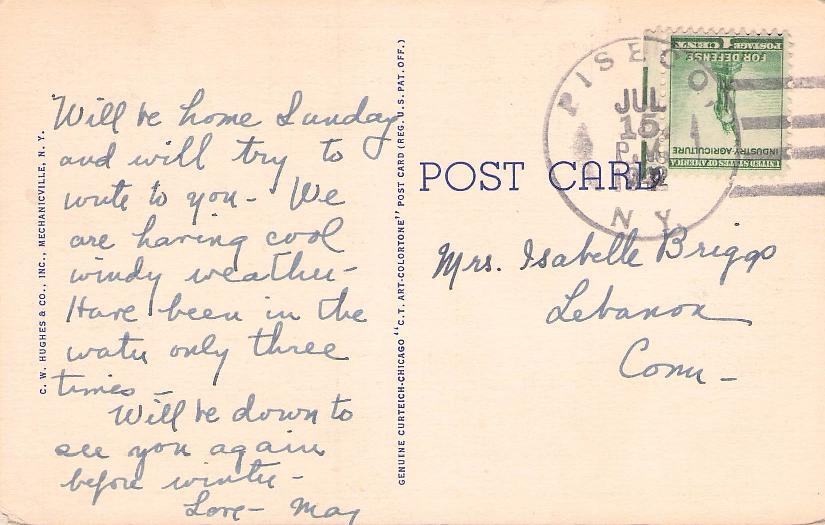 Will be home Sunday
and will try to
write to you - We
are having cool
windy weather -
Have been in the
water only three
times -
Will be down to
see you again
before winter -
Love - May
C. W. HUGHES & CO., INC., MECHANICVILLE, N. Y.
GENUINE CURTEICH-CHICAGO "C. T. ART-COLORTONE" POST CARD (REG. U. S. PAT. OFF.)
POST CARD
PISECO,
JUL
15
PM
N. Y.
UNITED STATES OF AMERICA
INDUSTRY-AGRICULTURE
FOR DEFENSE
POSTAGE 1 CENT
Mrs. Isabelle Briggs
Lebanon
Conn -